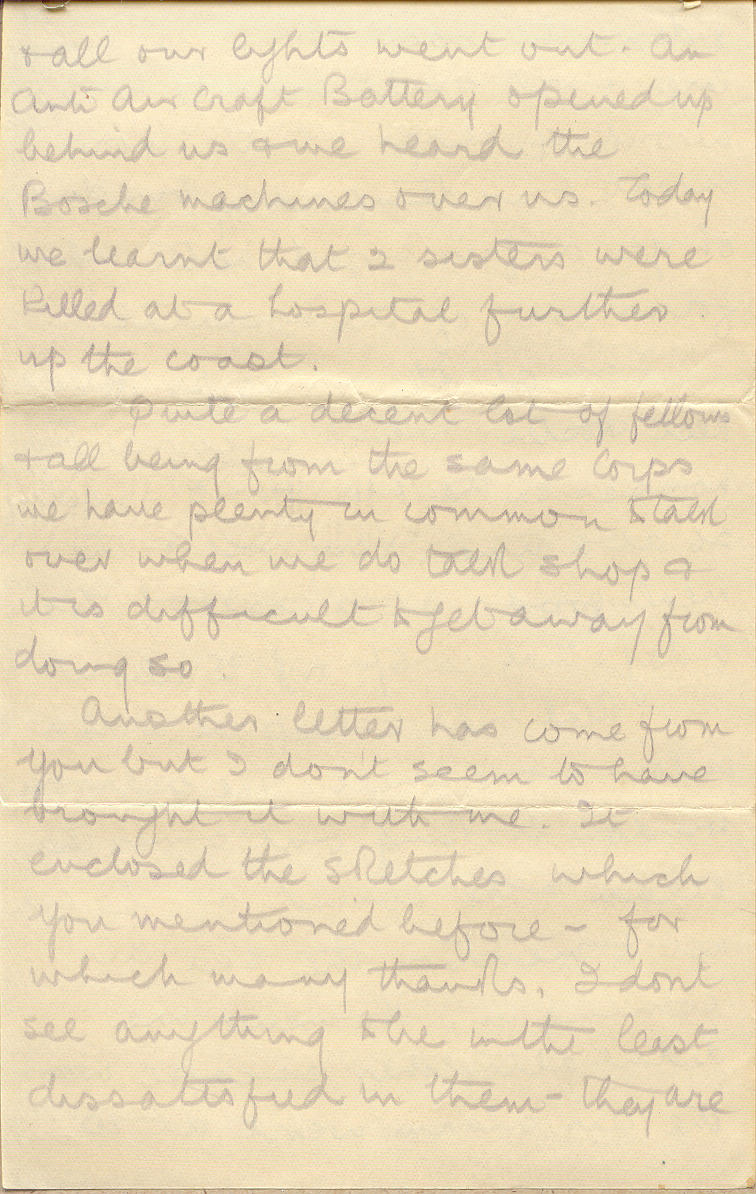 & all our lights went out. An
Anti Air Craft Battery opened up
behind us & we heard the
Bosche machines over us. Today
we learnt that 2 sisters were
killed at a hospital further
up the coast.
Quite a decent lot of fellows
& all being from the same Corps
we have plenty in common to talk
over when we do talk shop &
it is difficult to get away from
doing so.
Another letter has come from
you but I don't seem to have
brought it with me. It
enclosed the sketches which
you mentioned before - for
which many thanks. I dont
see anything to be in the least
dissatisfied in them - they are